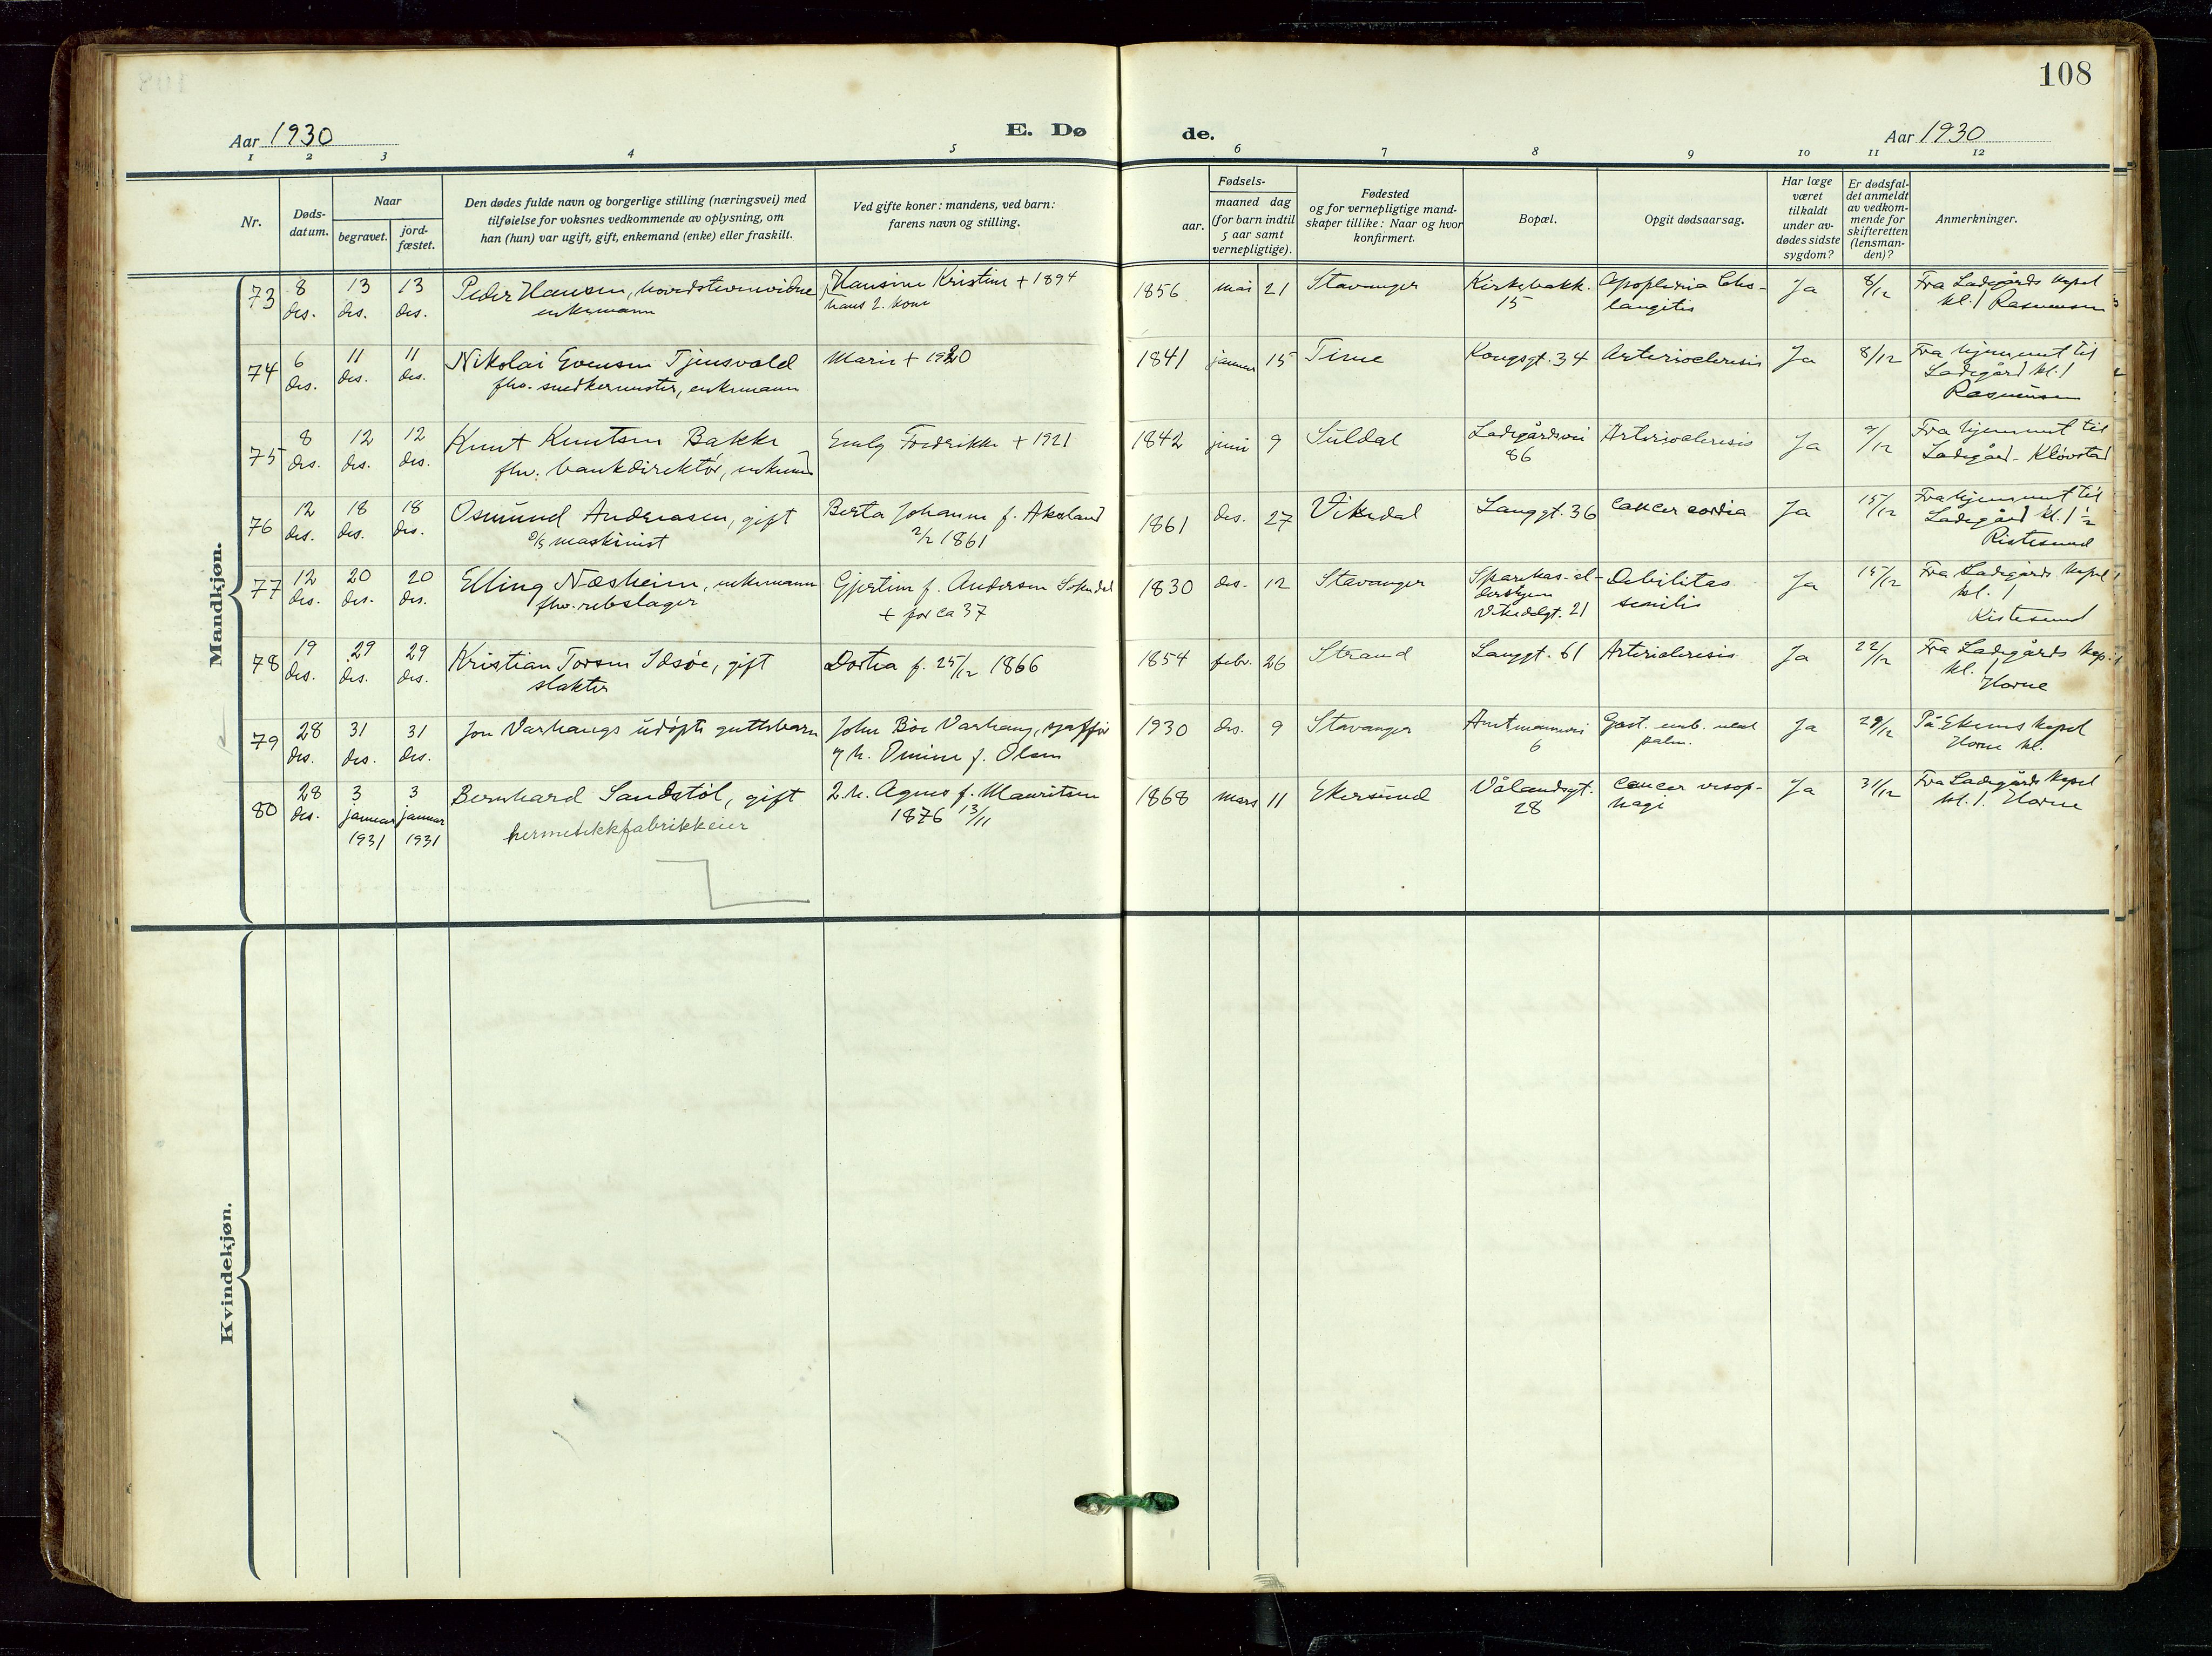 108
Aar 1930
E. Dø de.
Aar 1930
1 2 3 4 5 6 7 8 9 10 11 12
Nr.
Døds-
datum.
Naar
begravet.
jord-
fæstet.
Den dødes fulde navn og borgerlige stilling (næringsvei) med
tilføielse for voksnes vedkommende av oplysning, om
han (hun) var ugift, gift, enkemand (enke) eller fraskilt.
Ved gifte koner: mandens, ved barn:
farens navn og stilling.
aar.
Fødsels-
maaned dag
(for barn indtil
5 aar samt
vernepligtige).
Fødested
og for vernepligtige mand-
skaper tillike: Naar og hvor
konfirmert.
Bopæl.
Opgit dødsaarsag.
Har læge
været
tilkaldt
under av-
dødes sidste
sygdom?
Er dødsfal-
det anmeldt
av vedkom-
mende for
skifteretten
(lensman-
den)?
Anmerkninger.
Mandkjøn.
73
8 des.
13 des.
13 des.
Peder Hansen,
enkemann
Hansine Kristine + 1894
hans 2. kone
1856 mai 21
Stavanger
Kirkebakk.
15
Apoplexia Cho-
langitis
Ja
8/12
Fra Ladegårds kapel
kl. 1 Rasmussen
74
6 des.
11 des.
11 des.
Nikolai Evensen Tjensvold
fhv. snedkermester, enkemann
Marie + 1920
1841 januar 15
Time
Kongsgt. 34
Arteriosclerosis
Ja
8/12
Fra hjemmet til
Ladegård kl. 1
Rasmussen
75
8 des.
12 des.
12 des.
Knut Knutsen Bakke
fhv. bankdirektør, enkem
Emly Fredrikke + 1921
1842 juni 9
Suldal
Ladegårdsvei
86
Arteriosclerosis
Ja
9/12
Fra hjemmet til
Ladegård - Kløvstad
76
12 des.
18 des.
18 des.
Osmund Andreasen, gift
D/S maskinist
Berta Johanne f. Aksland
2/2 1861
1861 des. 27
Vikedal
Langgt. 36
Cancer cardia
Ja
15/12
Fra hjemmet til
Ladegård kl. 1 1/2
Ristesund
77
12 des.
20 des.
20 des.
Elling Næsheim, enkemann
fhv. rebslager
Gjertine f. Andersen Sokndal
+ for ca 37
1830 des. 12
Stavanger
Sparekas. al-
dershjem
Vikedalgt. 21
Debilitas
senilis
Ja
15/12
Fra Ladegårds kapel
kl. 1
Ristesund
78
19 des.
29 des.
29 des.
Kristian Torsen Idsøe, gift
slakter
Dortea f. 25/12 1866
1854 febr. 26
Strand
Langgt. 61
Arteriosclerosis
Ja
22/12
Fra Ladegårds kap.
kl. 1
Horne
79
28 des.
31 des.
31 des.
Jon Varhaugs udøpte guttebarn
John Bøe Varhaug, sjaffør
og h. Omine f. Olsen
1930 des. 9
Stavanger
Amtmannvei
6
palm.
Ja
29/12
På Ekenes kapel
Horne kl.
80
28 des.
3 januar 1931
3 januar 1931
Bernhard Sandstöl, gift
hermetikkfabrikkeier
2. h. Agnes f. Mauritzen
1876 13/11
1868 mars 11
Ekersund
Vålandsgt.
28
Cancer oesop-
hagi
Ja
31/12
Fra Ladegårds kapel
kl. 1. Horne
Kvindekjøn.